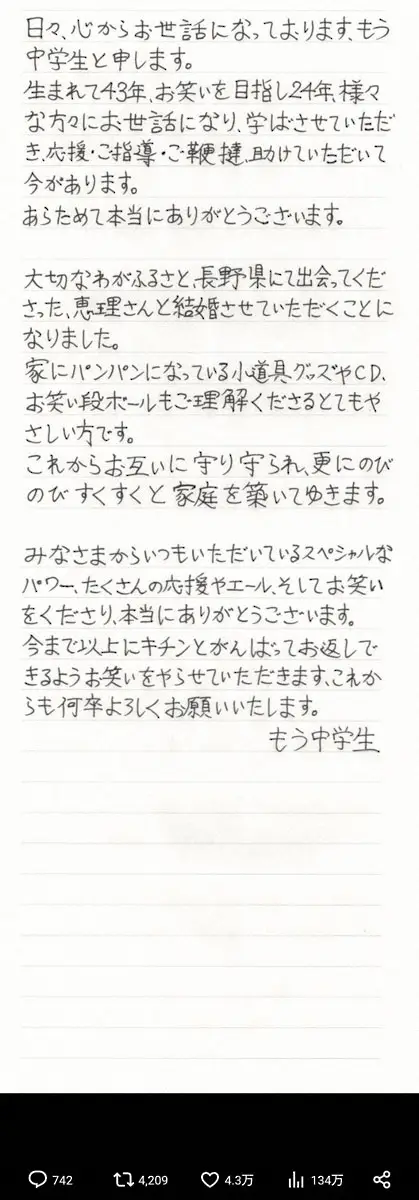 日々、心からお世話になっております、もう
中学生と申します。
生まれて43年、お笑いを目指し24年、様々
な方々にお世話になり、学ばさせていただ
き、応援・ご指導・ご鞭撻、助けていただいて
今があります。
あらためて本当にありがとうございます。
大切なわがふるさと、長野県にて出会ってくだ
さった、恵理さんと結婚させていただくことに
なりました。
家にパンパンになっている小道具グッズやCD、
お笑い段ボールもご理解くださるとてもや
さしい方です。
これからお互いに守り守られ、更にのび
のびすくすくと家庭を築いてゆきます。
みなさまからいつもいただいているスペシャルな
パワー、たくさんの応援やエール、そしてお笑い
をくださり、本当にありがとうございます。
今まで以上にキチンとがんばってお返しで
きるようお笑いをやらせていただきます、これか
らも何卒よろしくお願いいたします。
もう中学生
742 4,209 4.3万 134万